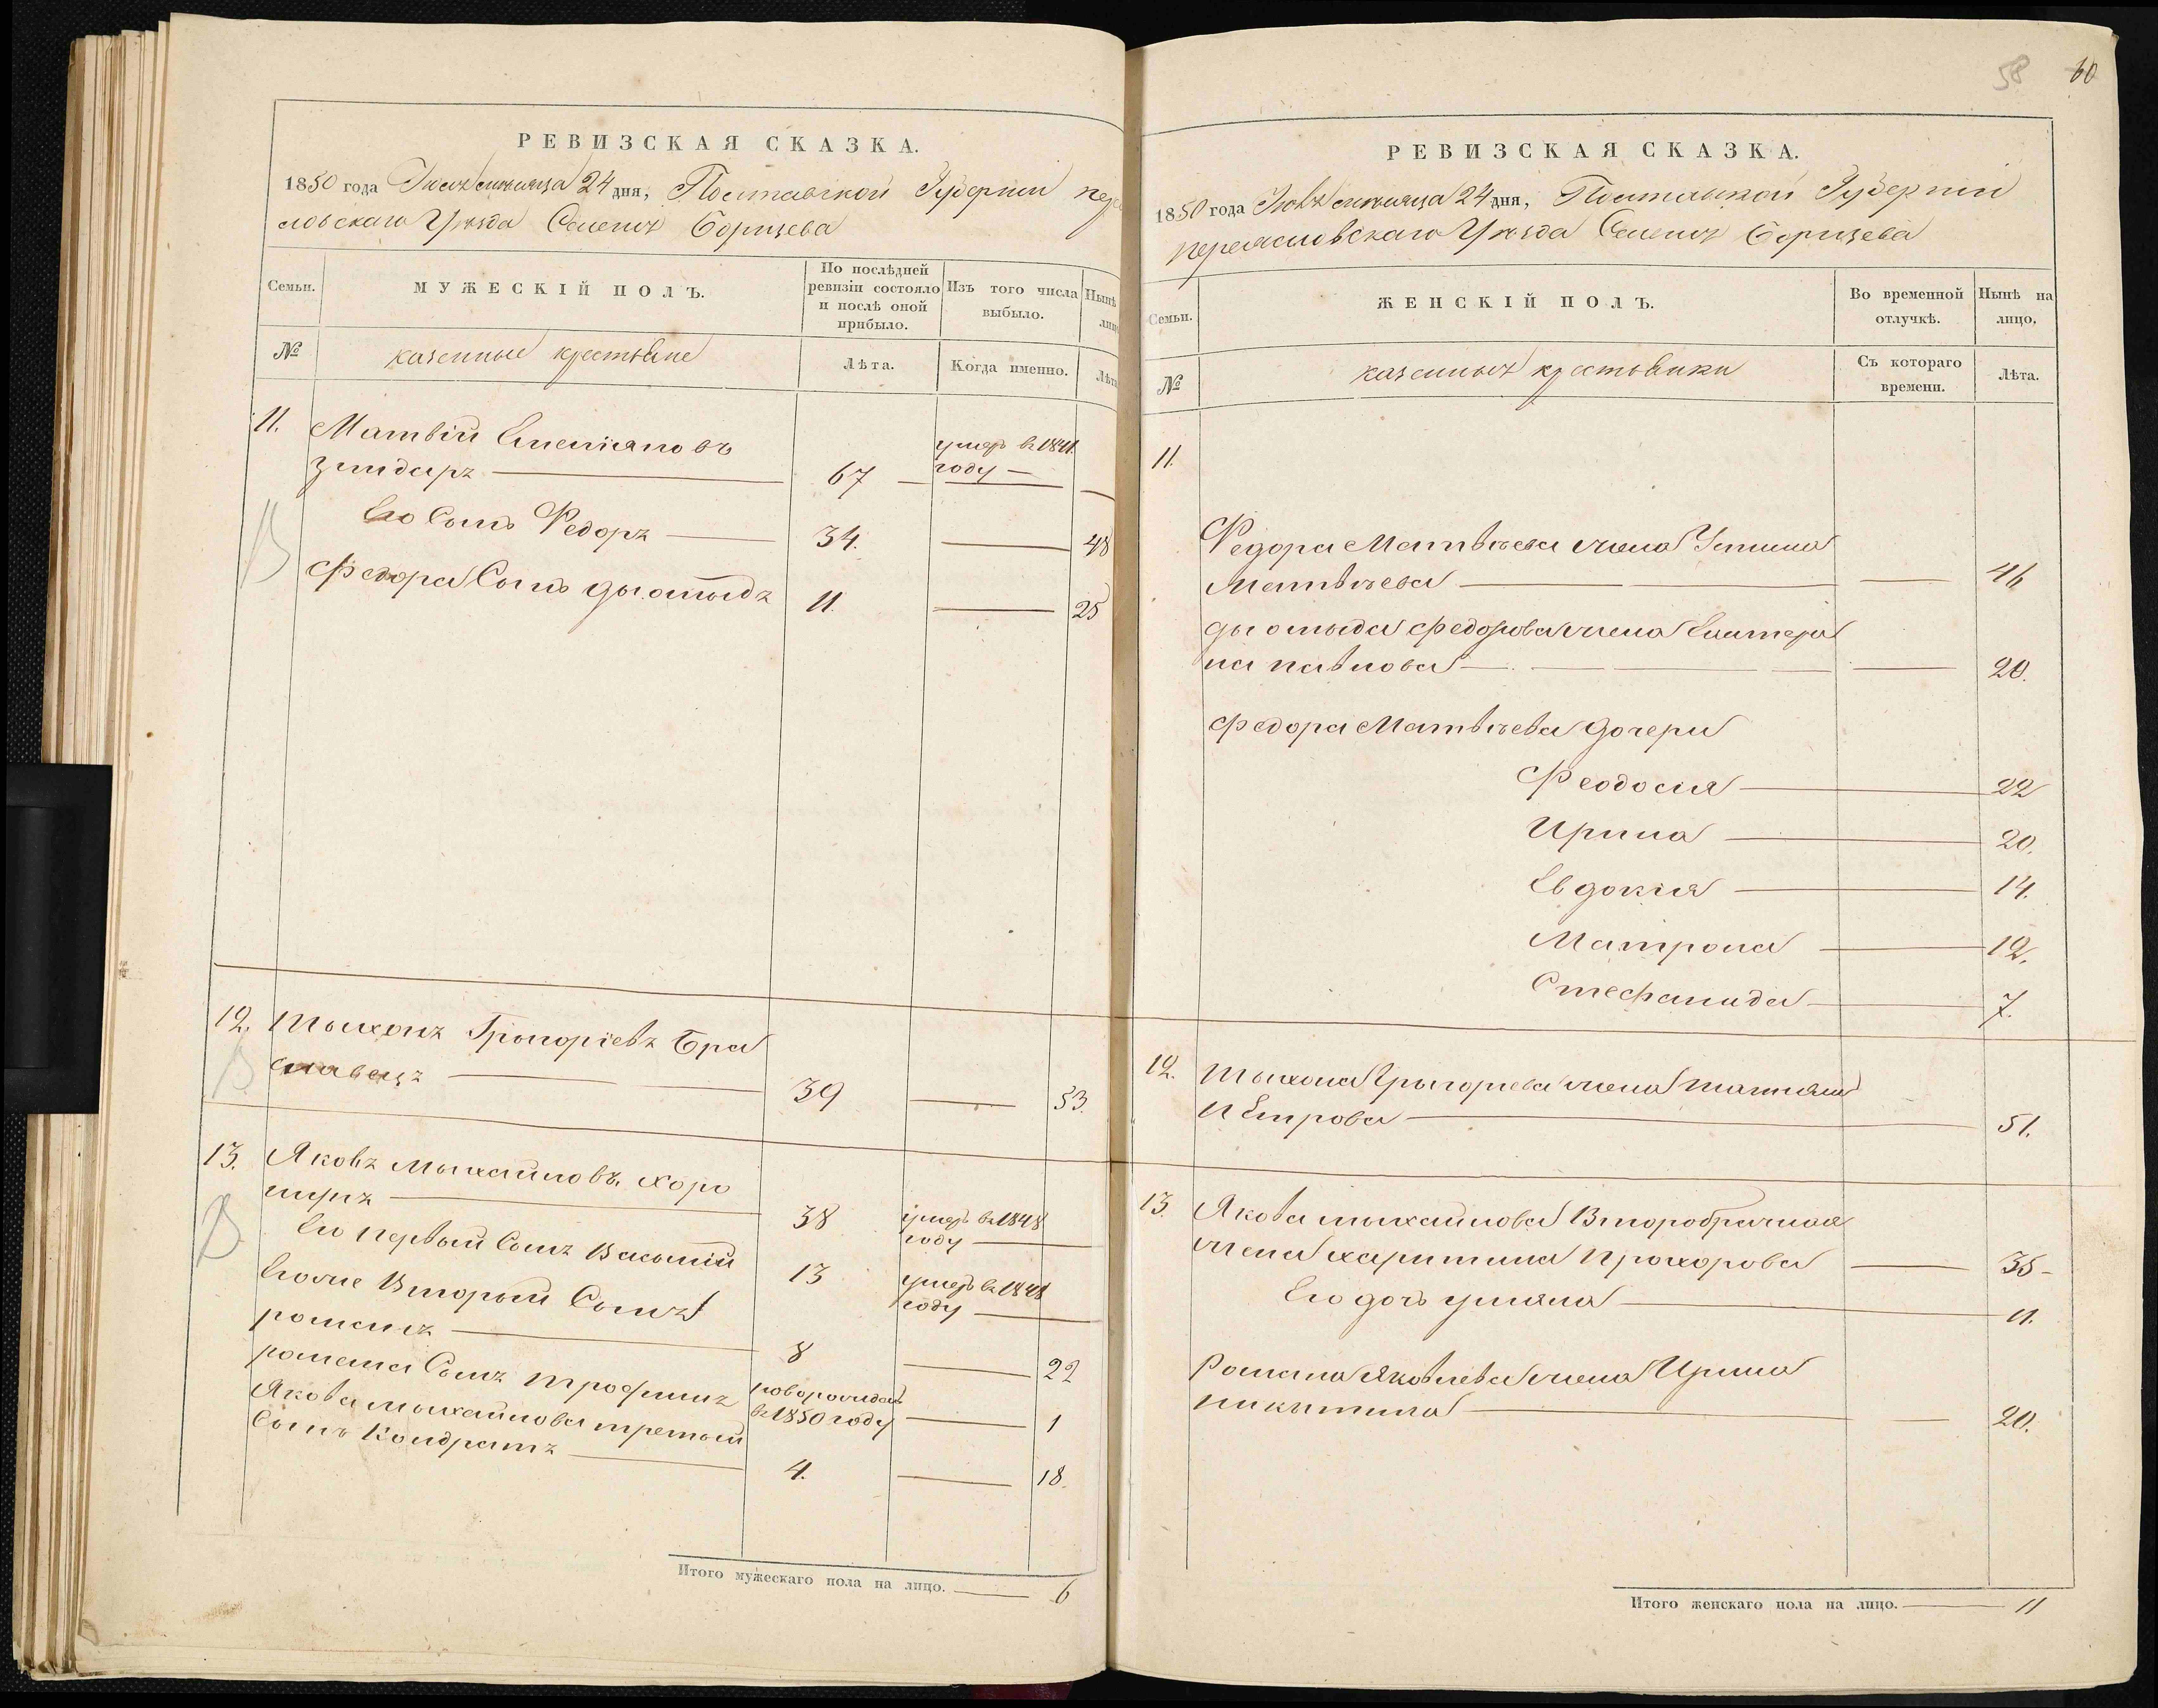 РЕВИЗСКАЯ СКАЗКА.
1850 года мѣсяца 24 дня, Полтавской Губерніи пере
словскаго Уѣзда Селенія Борисцева
Семьи.
МУЖЕСКІЙ ПОЛЪ.
По послѣдней ревизіи состояло и послѣ оной прибыло.
Изъ того числа выбыло.
Нынѣ
лицо
№
казенные крестьяне
Лѣта.
Когда именно.
Лѣта
11. Матвій Емеліяновъ умеръ въ 1841
67 году —
Его Сынъ Федоръ 34. 48
Федора Сынъ 11. 25
12. Тыхонъ Григоріевъ Бра
славецъ 39 53.
13. Яковъ Мыхайловъ Хоро
38 умеръ въ 1848 году
Его первый Сынъ Васылій 13 умеръ въ 1848 году
Его же Вторый Сынъ
романъ 8 22
романа Сынъ трофимъ новорожденъ
въ 1850 году 1
Якова мыхайлова третый
Сынъ Кондратъ 4. 18.
Итого мужескаго пола на лицо. 6
58 60
РЕВИЗСКАЯ СКАЗКА.
1850 года мѣсяца 24 дня, Полтавской Губерніи
переясловскаго Уѣзда Селенія Борисцева
Семьи.
ЖЕНСКІЙ ПОЛЪ.
Во временной отлучкѣ.
Нынѣ на лицо.
№
казенныхъ крестьянки
Съ котораго времени.
Лѣта.
11.
Федора Матвѣева жена Устина
Матвѣева 46
Федорова жена Екатери
на павлова 20.
Федора Матвѣева дочери
Феодосія 22
Ирина 20.
Евдокія 14.
Матрона 12.
Стефанида 7.
12. Тыхона Григорьева жена татіяна
Петрова 51.
13. Якова мыхайлова Второбрачная
жена харитина Прохорова 35
Его дочъ уліяна 11.
Романа Яковлева жена Ирина
никытина 20.
Итого женскаго пола на лицо. 11